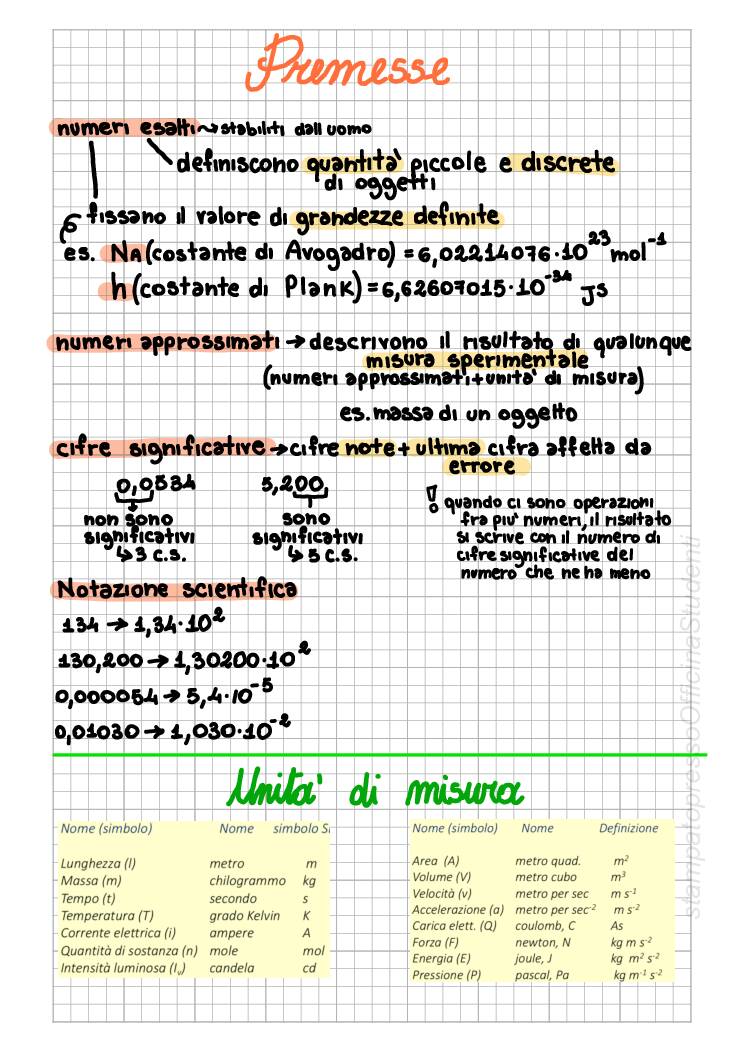 Premesse
numeri esatti ↝ stabiliti dall uomo
definiscono quantita' piccole e discrete
di oggetti
fissano il valore di grandezze definite
es. NA (costante di Avogadro) = 6,02214076·10²³ mol⁻¹
h (costante di Plank) = 6,62607015·10⁻³⁴ JS
numeri approssimati → descrivono il risultato di qualunque
misura sperimentale
(numeri approssimati + unita' di misura)
es. massa di un oggetto
cifre significative → cifre note + ultima cifra affetta da
errore
0,0534 5,200,
non sono
significativi
↳ 3 c.s.
sono
significativi
↳ 5 c.s.
! quando ci sono operazioni
fra piu' numeri, il risultato
si scrive con il numero di
cifre significative del
numero che ne ha meno
Notazione scientifica
134 → 1,34·10²
130,200 → 1,30200·10²
0,000054 → 5,4·10⁻⁵
0,01030 → 1,030·10⁻²
Unita' di misura
Nome (simbolo) Nome simbolo S
Lunghezza (l) metro m
Massa (m) chilogrammo kg
Tempo (t) secondo s
Temperatura (T) grado Kelvin K
Corrente elettrica (i) ampere A
Quantità di sostanza (n) mole mol
Intensità luminosa (Iᵥ) candela cd
Nome (simbolo) Nome Definizione
Area (A) metro quad. m²
Volume (V) metro cubo m³
Velocità (v) metro per sec m s⁻¹
Accelerazione (a) metro per sec⁻² m s⁻²
Carica elett. (Q) coulomb, C As
Forza (F) newton, N kg m s⁻²
Energia (E) joule, J kg m² s⁻²
Pressione (P) pascal, Pa kg m⁻¹ s⁻²
stampatopressoOfficinaStudenti